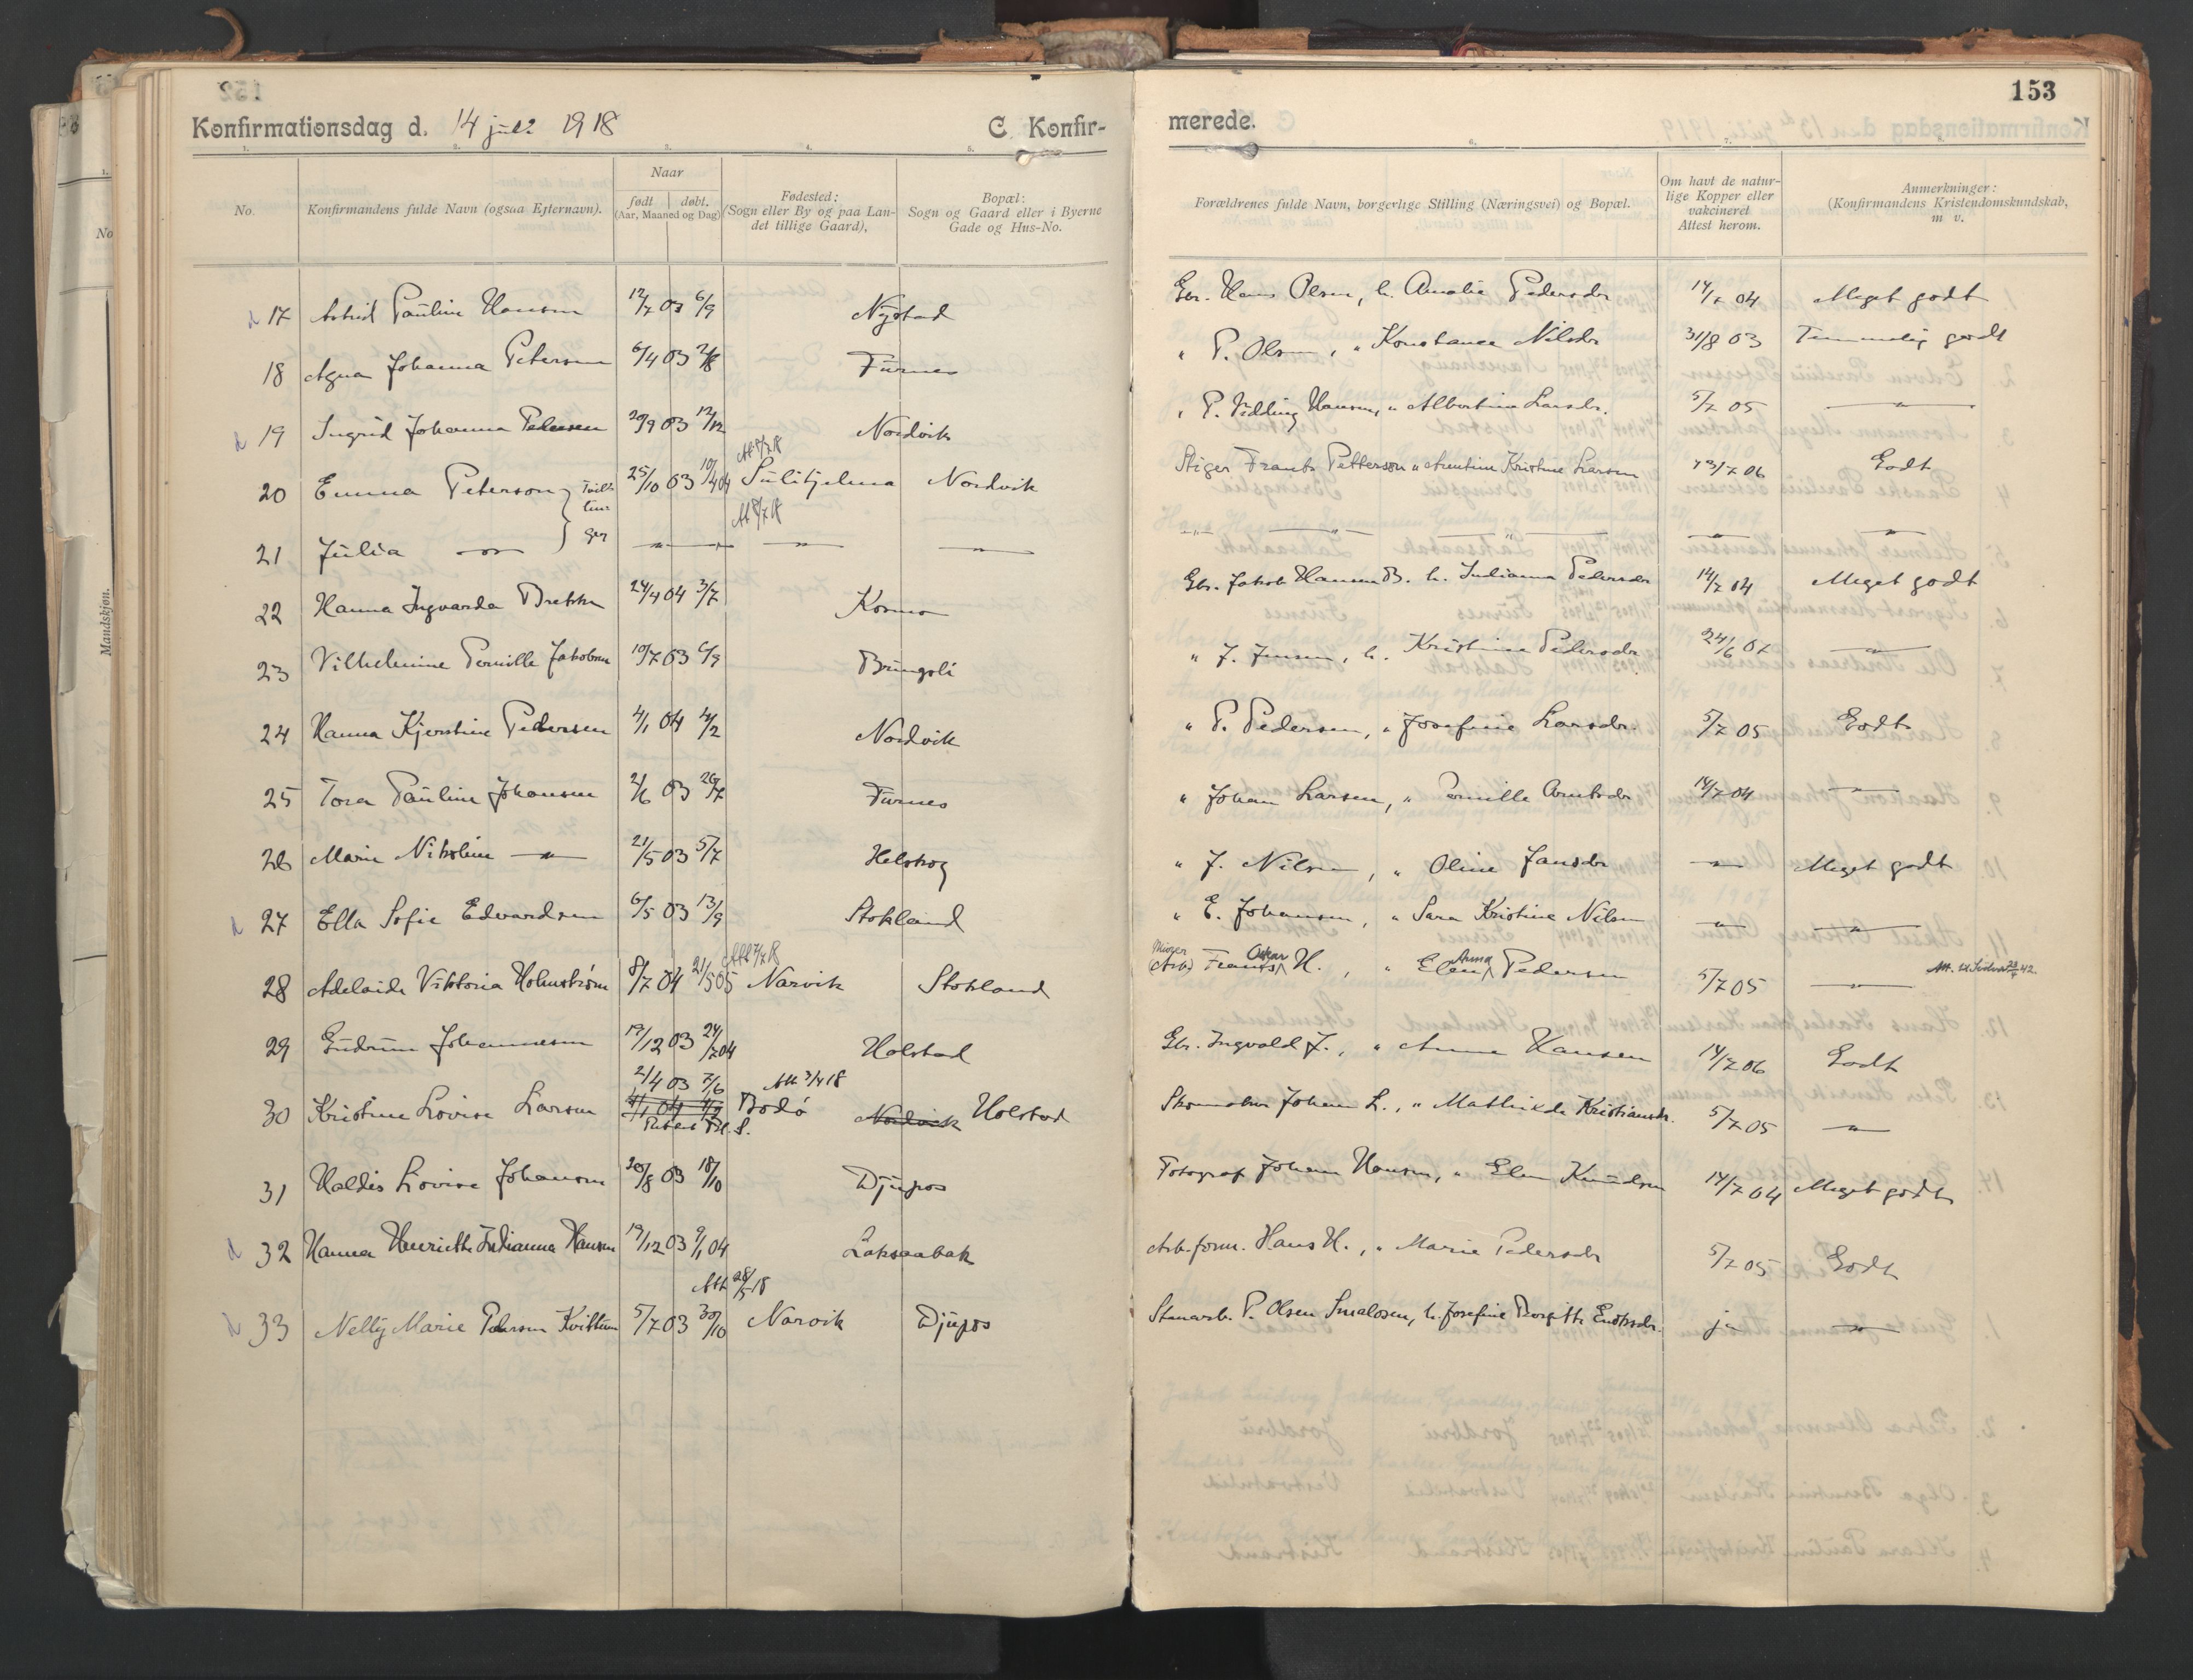 153
Konfirmationsdag d. 14 juli 1918 C. Konfir-
merede.
1. 2. 3. 4. 5.
No. Konfirmandens fulde Navn (ogsaa Efternavn).
Naar
født døbt.
(Aar, Maaned og Dag)
Fødested:
(Sogn eller By og paa Lan-
det tillige Gaard),
Bopæl:
Sogn og Gaard eller i Byerne
Gade og Hus-No.
Forældrenes fulde Navn, borgerlige Stilling (Næringsvei) og Bopæl.
Om havt de natur-
lige Kopper eller
vakcineret
Attest herom.
Anmerkninger:
(Konfirmandens Kristendomskundskab,
m v.
No
Mandskjøn.
d 17 Astrid Pauline Hansen 12/7 03 6/9 Nystad Gbr. Hans Olsen, h. Amalie Pedersdr 14/7 04 Meget godt
18 Agna Johanna Petersen 6/4 03 2/8 Furnes " P. Olsen, " Konstance Nilsdr 31/8 03 Temmelig godt
d 19 Ingrid Johanna Pedersen 29/9 03 12/12 Nordvik " P. Hansen, " Albertine Larsdr. 5/7 05 "
Att 8/7 18
20 Emma Peterson } Tvillinger 25/10 03 10/4 04 Sulitjelma Nordvik Stiger Frants Petterson " Kristine Larsen 13/7 06 Godt
Att 8/7 18
21 Julia " " " " " " " " "
22 Hanna Ingvarda Brekke 24/4 04 3/7 Kosmo Gbr. Jakob Hansen B. h. Julianna Pedersdr 14/7 04 Meget godt
23 Vilhelmine Pernille Jakobsen 10/7 03 6/9 Bringsli " J. Jensen, h. Kristine Pedersdr. 24/6 07 "
24 Hanna Kjerstine Pedersen 4/1 04 4/2 Nordvik " P. Pedersen, " Josefine Larsdr. 5/7 05 Godt
25 Tora Pauline Johansen 2/6 03 26/7 Furnes " Johan Larsen, " Pernille Arntsdr 14/7 04 "
26 Marie Nikoline " 21/5 03 5/7 Helskog " J. Nilsen, " Oline Jansdr " Meget godt
d 27 Ella Sofie Edvardsen 6/5 03 13/9 Stokland " E. Johansen, " Sara Kristine Nilsen " "
Att 7/7 18
28 Adelaide Viktoria Holmstrøm 8/7 04 21/5 05 Narvik Stokland Miner (Arb) Frants Oskar H., " Elen Anna Pedersen 5/7 05 "
29 Gudrun Johannesen 19/12 03 24/7 04 Holstad Gbr. Ingvald J., " Anna Hansen 14/7 06 Godt
21/4 03 7/6 Att 3/4 18
30 Kristine Lovise Larsen 4/1 04 4/2 Bodø Nordvik Holstad Skomaker Johan L., " Mathilde Kristiansdr. 5/7 05 "
31 Haldis Lovise Johansen 20/8 03 18/10 Djupos Fotograf Johan Hansen, " Elen Knudsen 14/7 04 Meget godt
d 32 Hanna Henriette Julianna Hansen 19/12 03 9/1 04 Laksaabak Arb. form. Hans H., " Marie Pedersdr 5/7 05 Godt
Att 28/5 18
d 33 Nelly Marie Pedersen 5/7 03 30/10 Narvik Djupos Stenarb. P. Olsen Smalosen, h. Josefine Borgitte ja "